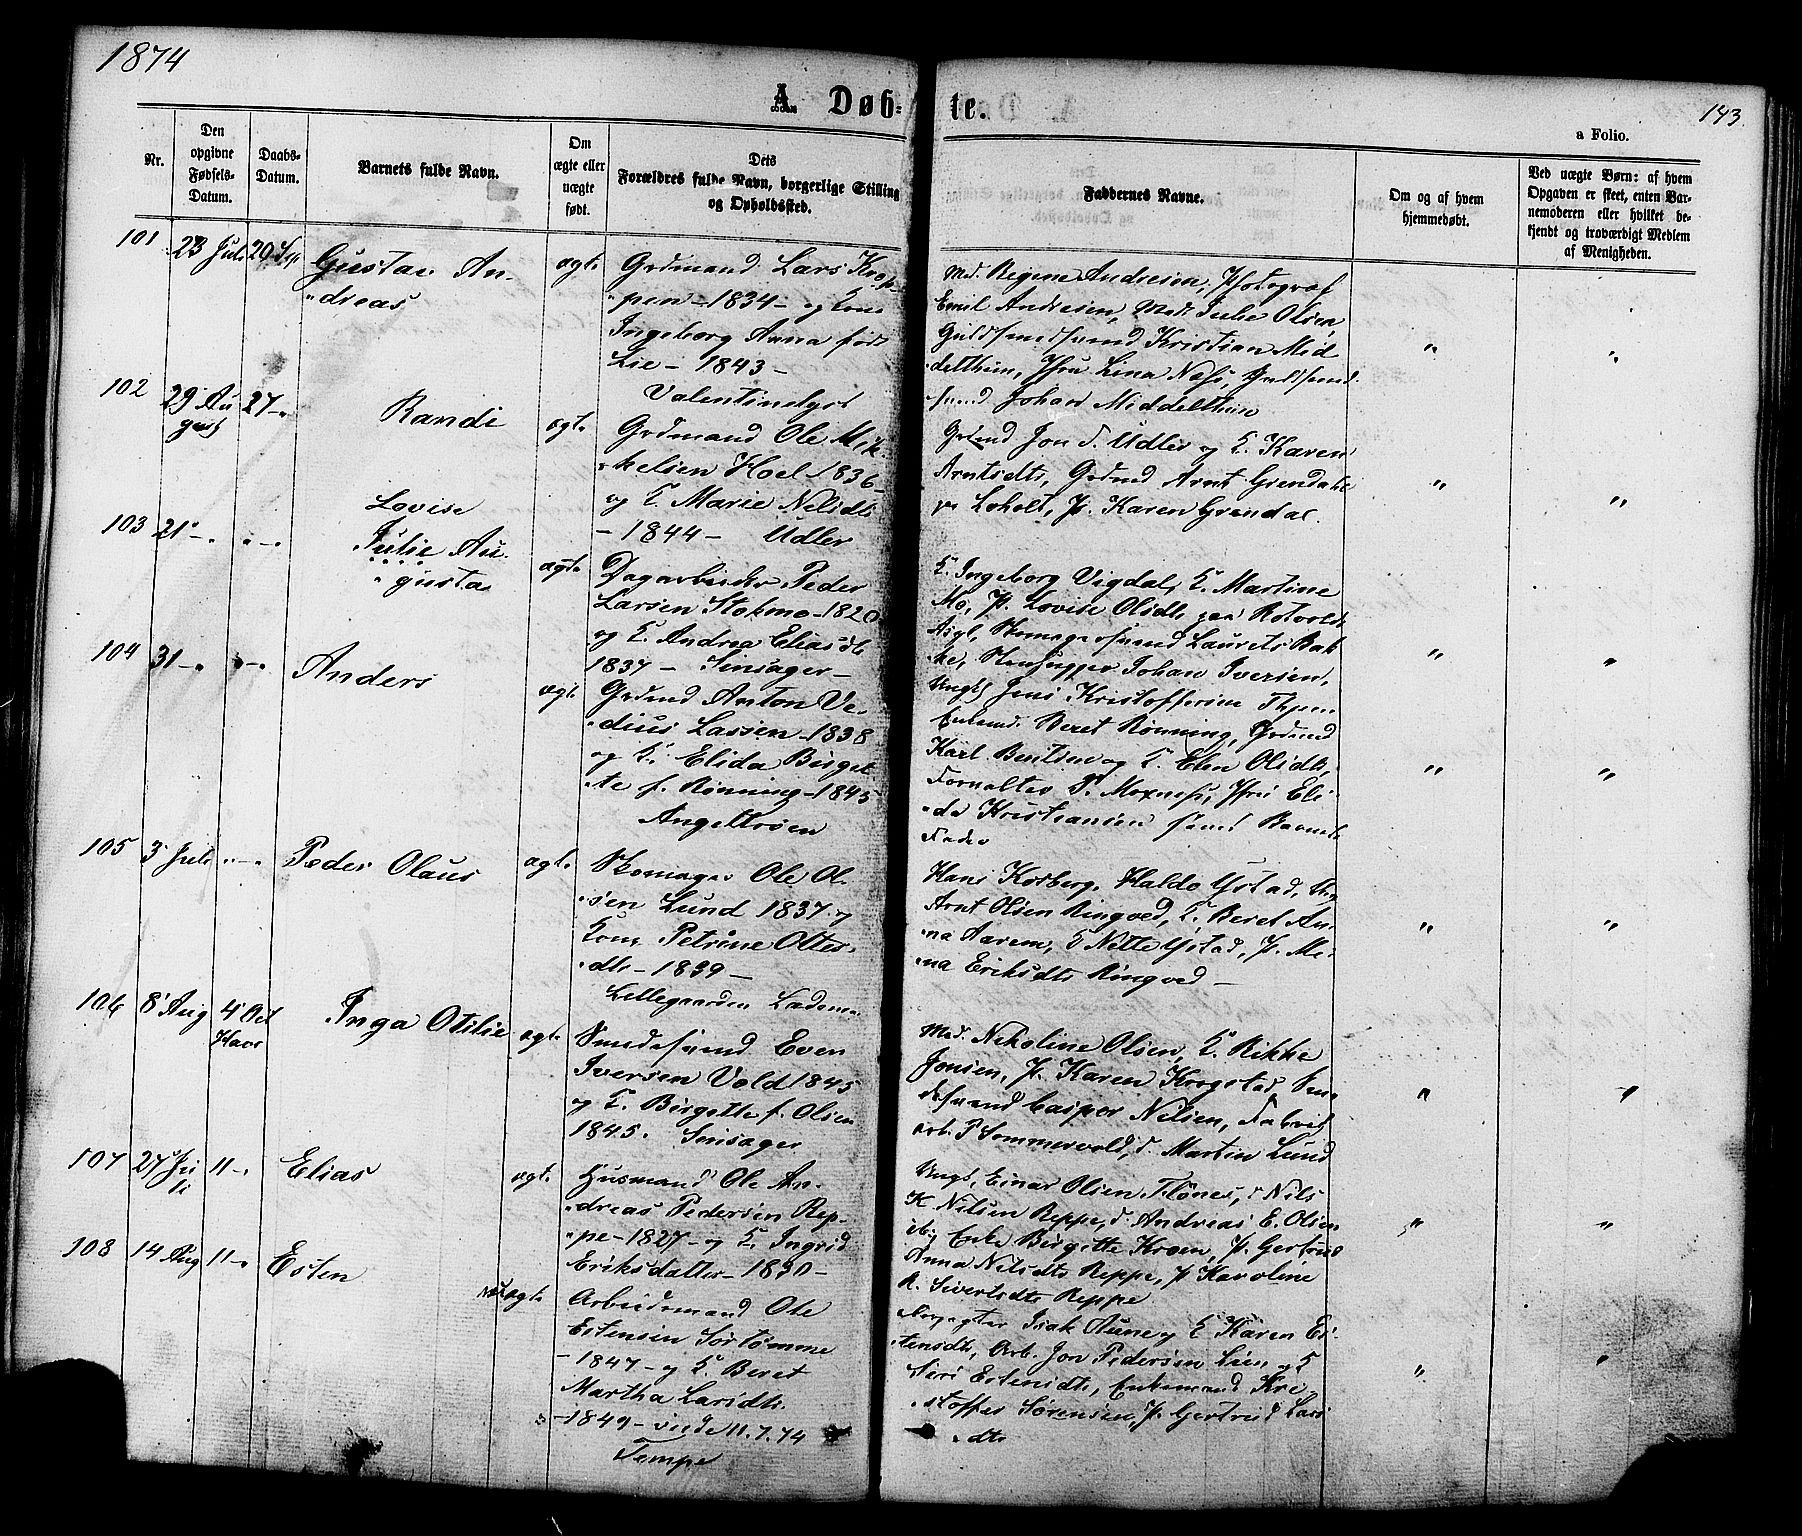 1874
A. Døb-
te.
143.
a Folio.
Nr.
Den
opgivne
Fødsels-
Datum.
Daabs-
Datum.
Barnets fulde Navn.
Om
ægte eller
uægte
født.
Dets
Forældres fulde Navn, borgerlige Stilling
og Opholdssted.
Faddernes Navne.
Om og af hvem
hjemmedøbt.
Ved uægte Børn: af hvem
Opgaven er skeet, enten Bar-
nemoderen eller hvilket be-
kjendt og troværdigt Medlem
af Menigheden.
101
23 Juli
20 Sep
Gustav An-
dreas
ægte
Grdmand Lars Krop-
pen - 1834 - og Kone
Ingeborg Anna født
Lie - 1843 -
Valentinlyst
Md. Regine Andresen, Photograf
Emil Andresen, Md. Julie Olsen,
Guldsmedsvend Kristian Mid
delthun, Jfru Lina Næss, Guldsmed
svend Johan Middelthun
102
29 Au
gust
27 - "
Randi
ægte
Grdmand Ole Mik
kelsen Hoel 1836 -
og K. Marie Nelsdtr
- 1844 - Udler
Grdmd Jon T. Udler og K. Karen
Arntsdtr, Grdmd Arnt Grendahl
Loholt, P. Karen Grendal.
103
21 - "
" - "
Lovise
Julie Au-
gusta
ægte
Dagarbeider Peder
Larsen Stokmo - 1820
og K. Andrea Eliasdtr
1837 - Sinsager -
K. Ingeborg Vigdal, K. Martine
Mo, P. Lovise Olsdtr paa Rotvold
Asyl, Skomagersvend Laurets Bak
ke, Stenhugger Johan Iversen,
104
31 - "
" - "
Anders
ægte
Grdmd Anton Ve-
dius Lassen - 1838
og K. Elida Birget
te f. Rønning - 1845
Angeltrøen
Ungk. Jens Kristoffersen
Enkemd. Beret Rønning, Grdmd
Karl Bentsen og K. Elen Olsdtr,
Forvalter P. Moxness, Jfru Eli-
da Kristiansen samt Barnets
Fader
105
3 Juli
" - "
Peder Olaus
ægte
Skomager Ole Ol-
sen Lund 1837 og
Kone Petrine Olters-
dtr - 1839 -
Lillegaarden Lademo
Hans Korberg, Haldo Ystad, Ung
Arnt Olsen Ringved, K. Beret An-
na Aarem, K Nette Ystad, P. Mi-
na Eriksdtr Ringved -
106
8 Aug
4 Oct
Havs
Inga Otilie
ægte
Smedesvend Even
Iversen Vold 1845
og K. Birgette f. Olsen
1845. Sinsager
Md. Nikoline Olsen, K. Rikke
Jonsen, P. Karen Krogstad, Sme-
desvend Casper Nilsen, Fabrik
arb. P Sommervold, d. Martin Lund
107
27 Ju
li
11 - "
Elias
ægte
Husmand Ole An-
dreas Pedersen Rep-
pe - 1827 - og K. Ingrid
Eriksdatter - 1830 -
Ungk. Einar Olsen Flønes, d Nils
K. Nilsen Reppe, d. Andreas E. Olsen
Enke Birgette Kroen, P. Gertrud
Anna Nilsdtr Reppe, P Karoline
R. Sivertsdtr Reppe
108
14 Aug
11 - "
Esten
uægte
Arbeidsmand Ole
Estensen Sørtømme
- 1847 - og K. Beret
Martha Larsdtr.
- 1849 - viede 11.7.74
Tempe
Isak Aune og K Karen Es-
tensdtr, Arb. Jon Pedersen Lien og K
Siri Estensdtr, Enkemand Kri-
stoffer Sørensen, P. Gertrud Lars
dtr